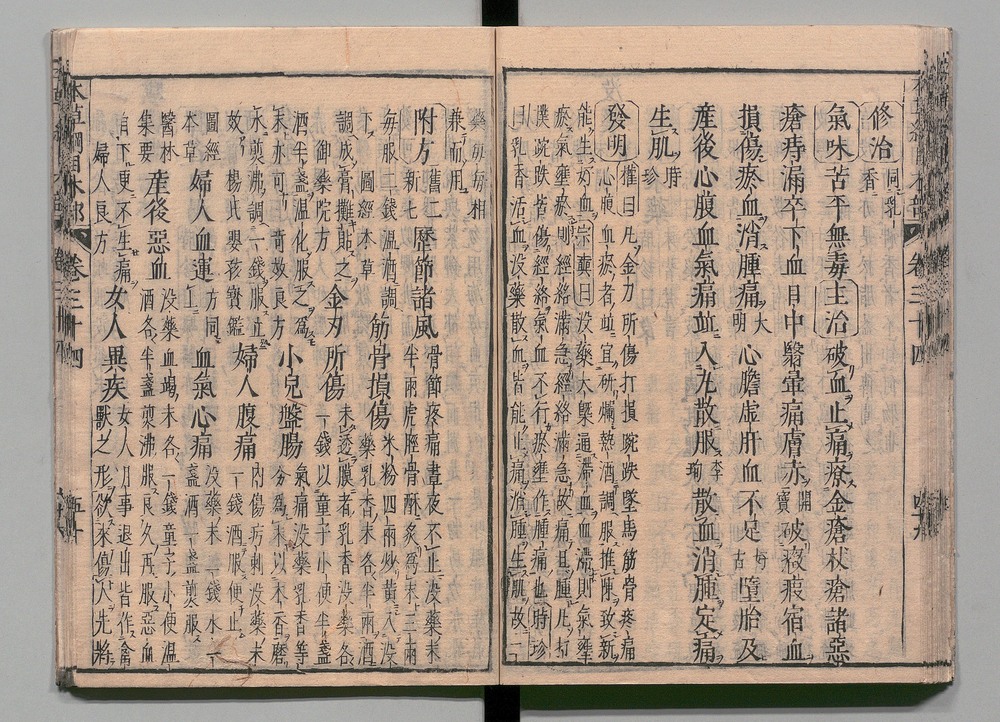 修治 同乳香
氣味 苦平無毒 主治 破血止痛療金瘡杖瘡諸惡
瘡痔漏卒下血目中翳暈痛膚赤 開寶 破癥瘕宿血
損傷瘀血消腫痛 大明 心膽虛肝血不足 好古 墮胎及
産後心腹血氣痛並入丸散服 李珣 散血消腫定痛
生肌 時珍
發明 權曰凡金刃所傷打損踠跌墜馬筋骨疼痛
心腹血瘀者並宜研爛熱酒調服推陳致新
能生好血宗奭曰没藥大槩通滯血血滯則氣壅
瘀氣壅瘀則經絡滿急經絡滿急故痛且腫凡打
撲踠跌皆傷經絡氣血不行瘀壅作腫痛也時珍
曰乳香活血没藥散血皆能止痛消腫生肌故二
藥每每相
兼而用
附方 舊二新七 歷節諸風 骨節疼痛晝夜不止没藥末半兩虎脛骨酥炙爲末三兩
每服二錢温酒調下圖經本草 筋骨損傷 米粉四兩炒黃入没藥乳香末各半兩酒
調成膏攤貼之御藥院方 金刃所傷 未透膜者乳香没藥各一錢以童子小便半盞
酒半盞温化服之爲末亦可奇效良方 小兒盤腸 氣痛没藥乳香等分爲末以木香磨
水煎沸調一錢服立效楊氏嬰孩寶鑑 婦人腹痛 内傷㽲刺没藥末一錢酒服便止
圖經本草 婦人血運 方同上 血氣心痛 没藥末二錢水一盞酒一盞煎服
醫林集要 産後惡血 没藥血竭末各一錢童子小便温酒各半盞煎沸服良久再服惡血
自下更不生痛婦人良方 女人異疾 女人月事退出皆作禽獸之形欲來傷人先將
本草綱目木部 卷三十四